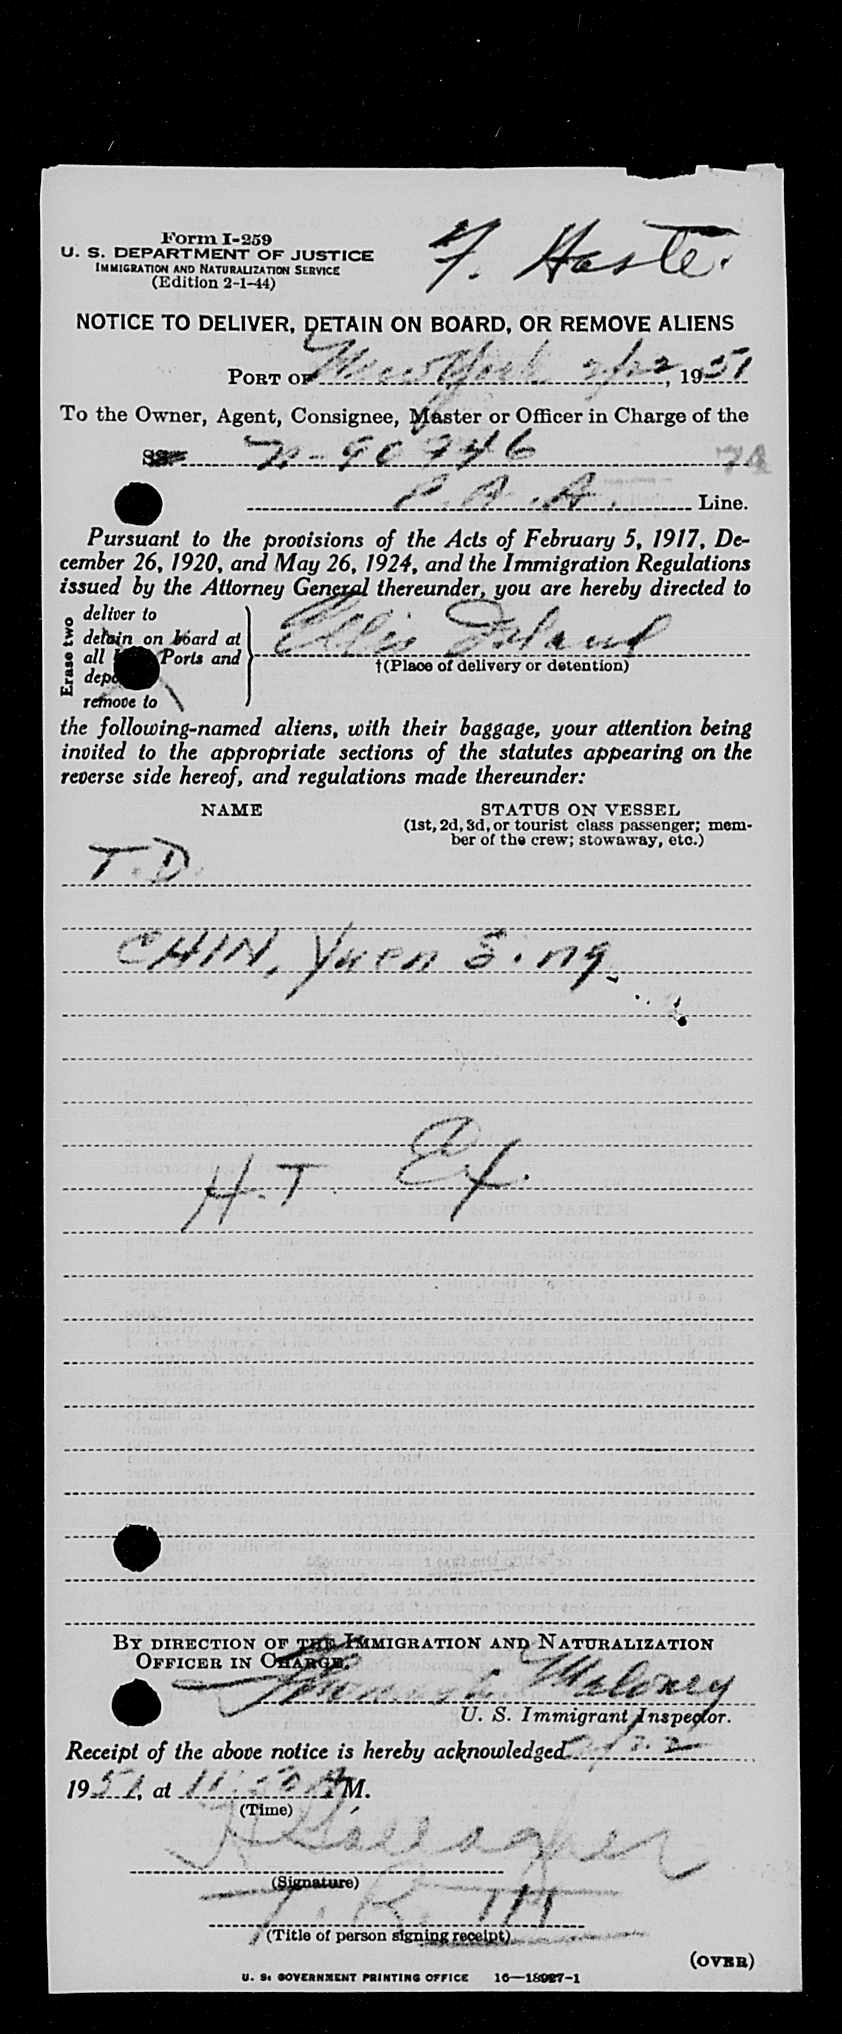 Form I-259
U. S. DEPARTMENT OF JUSTICE
IMMIGRATION AND NATURALIZATION SERVICE
(Edition 2-1-44)
F. Haste.
NOTICE TO DELIVER, DETAIN ON BOARD, OR REMOVE ALIENS
PORT OF New York 2/22, 1951
To the Owner, Agent, Consignee, Master or Officer in Charge of the
SS N-90746
P. A. A. Line.
Pursuant to the provisions of the Acts of February 5, 1917, De-
cember 26, 1920, and May 26, 1924, and the Immigration Regulations
issued by the Attorney General thereunder, you are hereby directed to
Erase two
deliver to
detain on board at
all Ports and
remove to
Ellis Island
†(Place of delivery or detention)
the following-named aliens, with their baggage, your attention being
invited to the appropriate sections of the statutes appearing on the
reverse side hereof, and regulations made thereunder:
NAME STATUS ON VESSEL
(1st, 2d, 3d, or tourist class passenger; mem-
ber of the crew; stowaway, etc.)
T.D.
CHIN, Yuen Sing
H.T. Ex.
BY DIRECTION OF THE IMMIGRATION AND NATURALIZATION
OFFICER IN CHARGE.
Thomas Maloney
U. S. Immigrant Inspector.
Receipt of the above notice is hereby acknowledged 2/22
1951, at 11:50 AM.
(Time)
H Gallagher
(Signature)
(Title of person signing receipt)
(OVER)
U. S. GOVERNMENT PRINTING OFFICE 16—18927-1